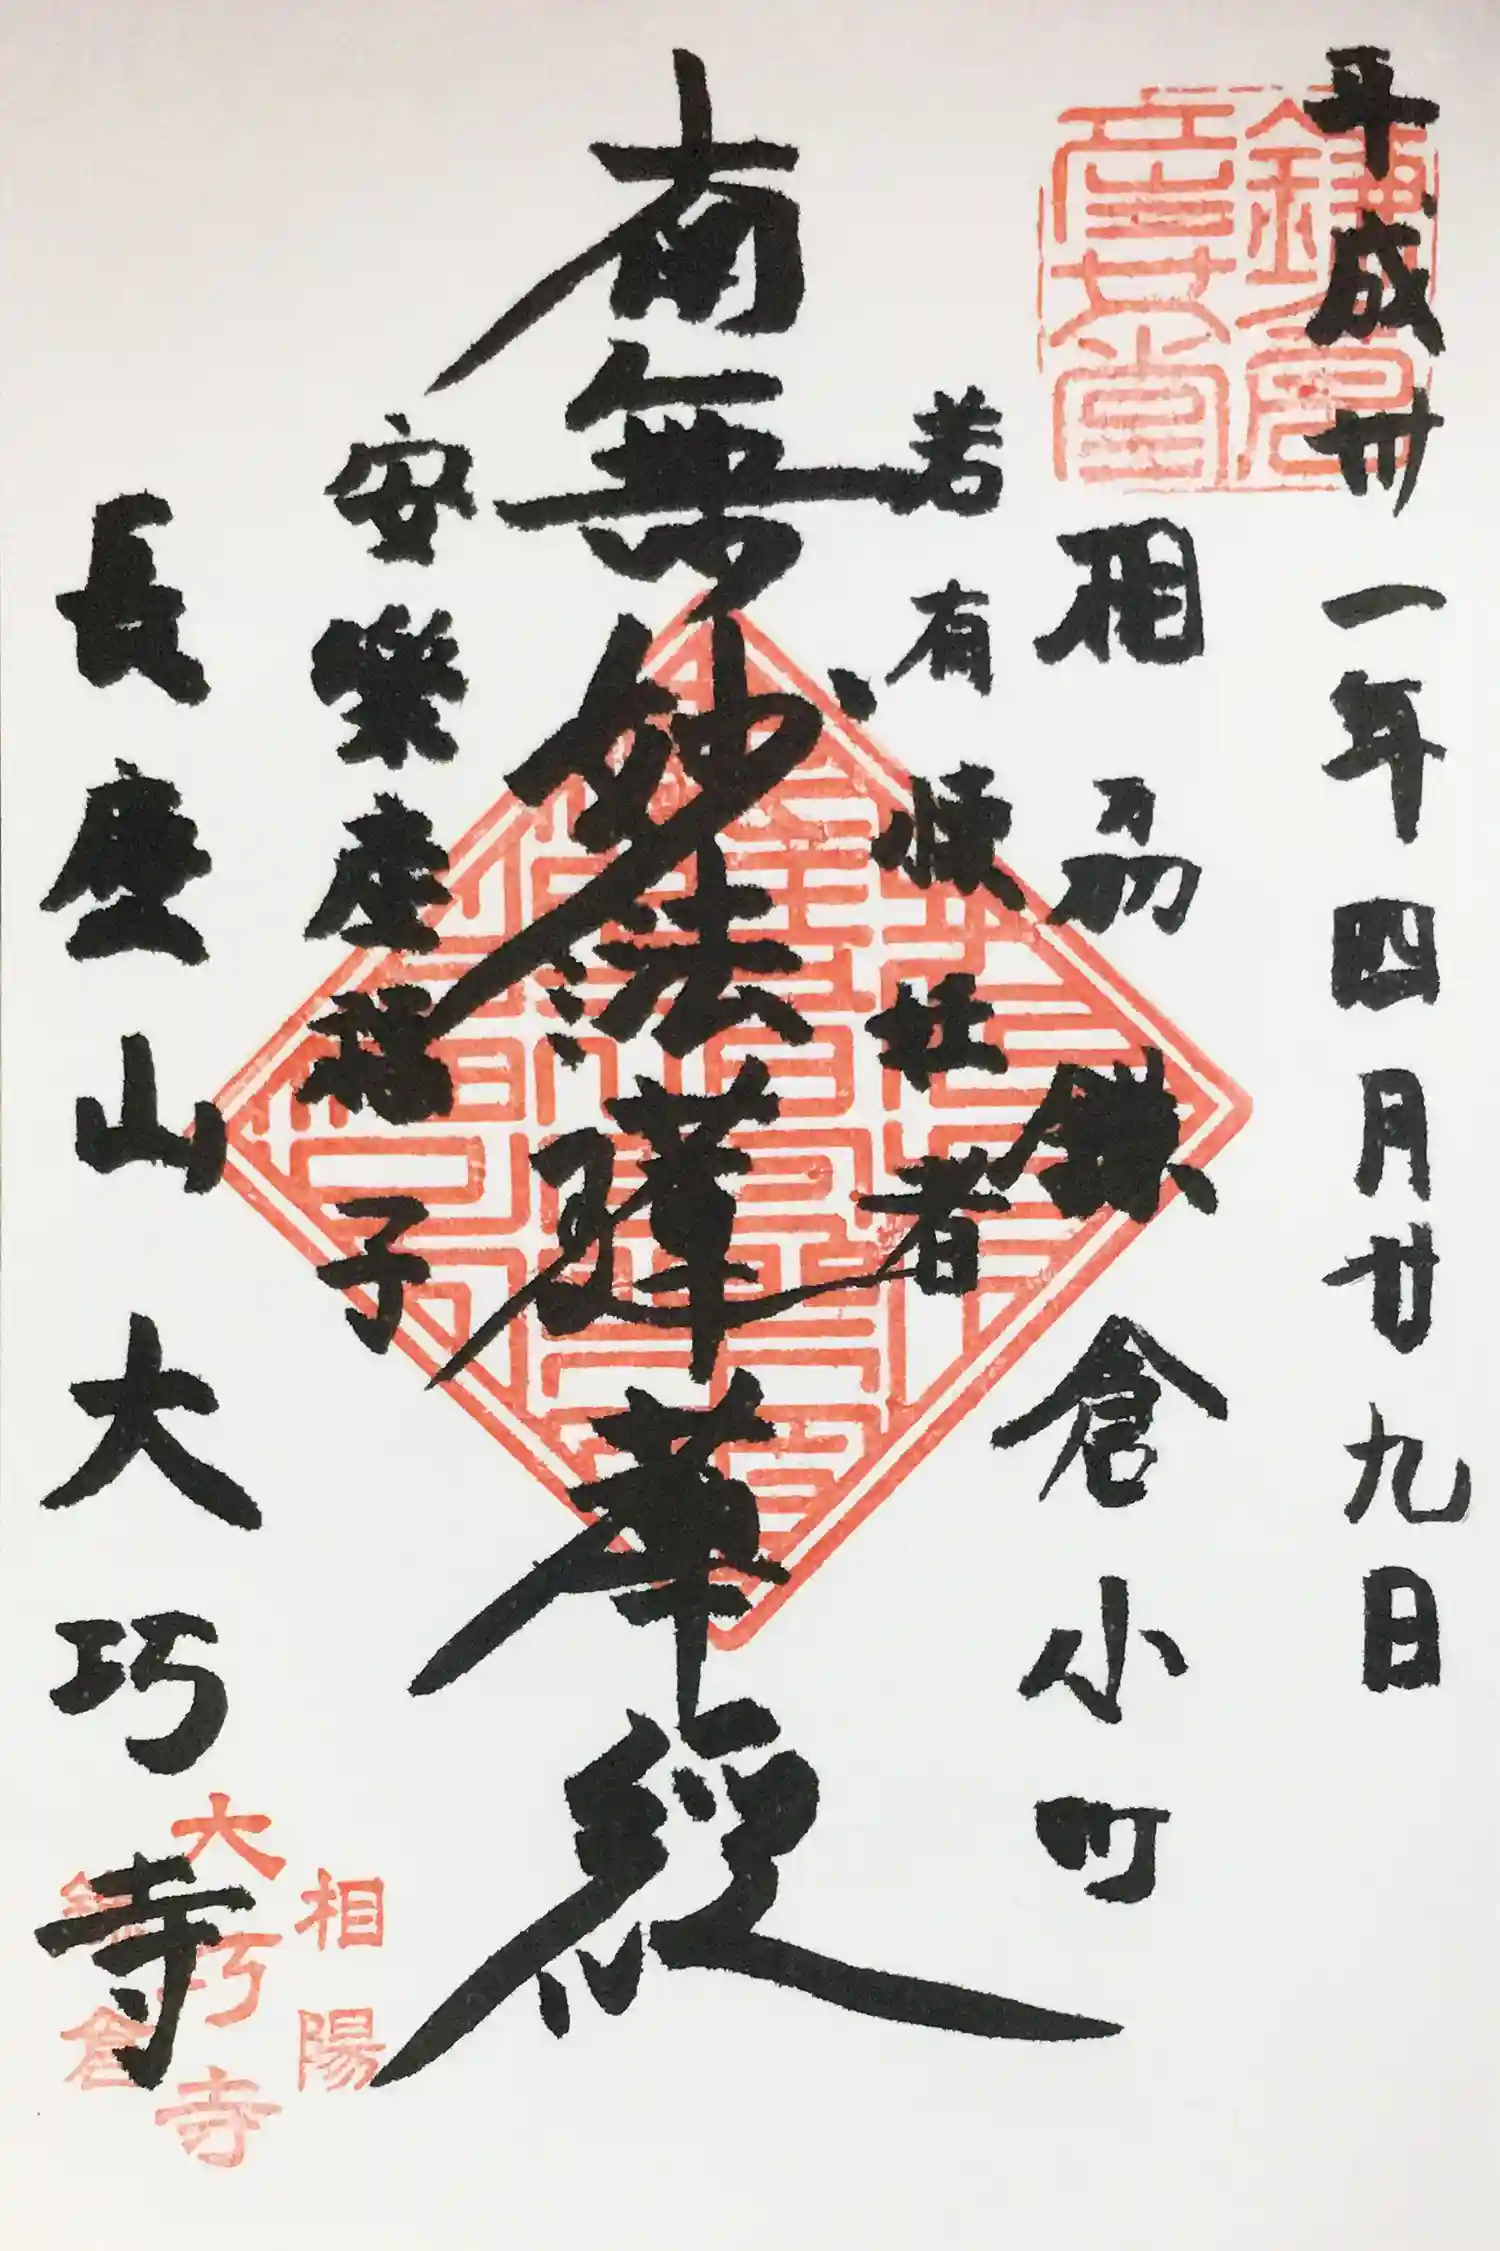 平成卅一年四月廿九日
鎌倉
産女堂
相刕鎌倉小町
若有懐妊者
南無妙法蓮華經
安樂産福子
長慶山大巧寺
相陽
大巧寺
鎌倉